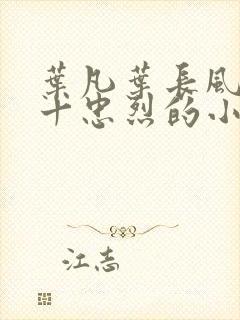 葉凡葉長風
十忠烈的小
江志